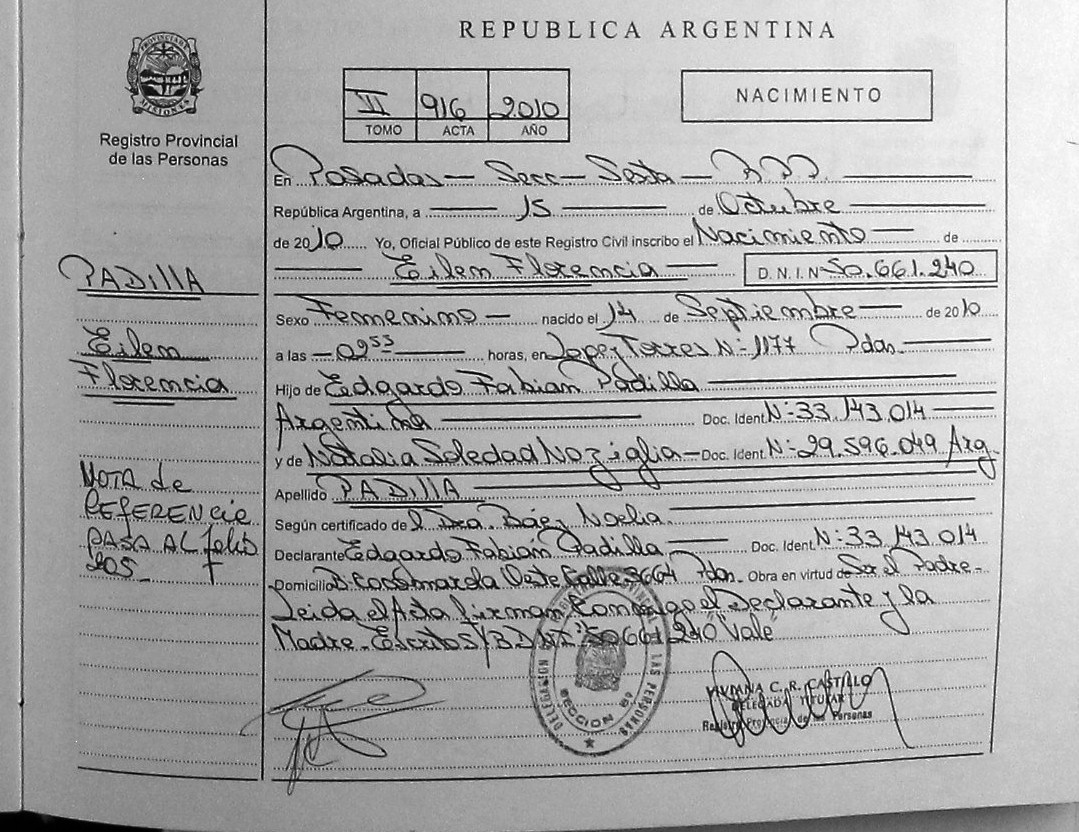 REPUBLICA ARGENTINA
PROVINCIA DE MISIONES
Registro Provincial
de las Personas
VI 916 2010
TOMO ACTA AÑO
NACIMIENTO
En Posadas — Secc — Sexta —
República Argentina, a 15 de Octubre
de 2010 Yo, Oficial Público de este Registro Civil inscribo el Nacimiento de
Eilem Florencia D.N.I. Nº 50.661.240
Sexo Femenino nacido el 14 de Septiembre de 2010
a las 02 53 horas, en Lopez Torres Nº 1177 Pdas.
Hijo de Edgardo Fabian Padilla
Argentina Doc. Ident. Nº 33.143.014
y de Natalia Soledad Noziglia Doc. Ident. Nº 29.596.049 Arg.
Apellido PADIllA
Según certificado de Dra. Báez Noelia.
Declarante Edgardo Fabián Padilla Doc. Ident. Nº 33.143.014
Domicilio Oeste Calle 3664 Pdas. Obra en virtud de Ser el Padre-
Leida el Acta firman Conmigo el Declarante y la
Madre. Escritos/ 50.661.240 "Vale"
PADIllA
Eilem
Florencia
NOTA de
REFERENCIA
PASA AL folio
205
DELEGACION REGISTRO PROVINCIAL DE LAS PERSONAS
SECCION 6º
VIVIANA C. R. CASTILLO
DELEGADA TITULAR
Registro Provincial de las Personas